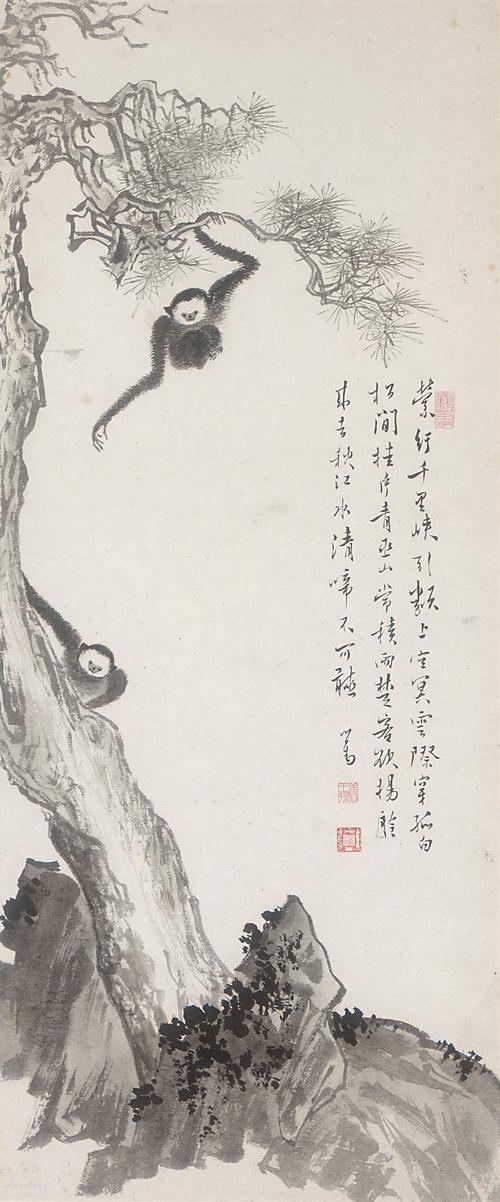 縈紆千里峽引類上空冥雲際穿孤白
松間挂片青巫山常積雨楚客欲揚舲
來去秋江水清啼不可聽
溥